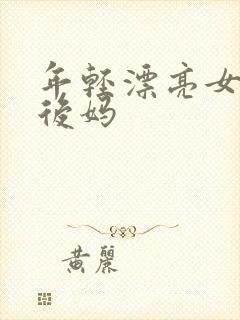 年輕漂亮女
後媽
黃麗